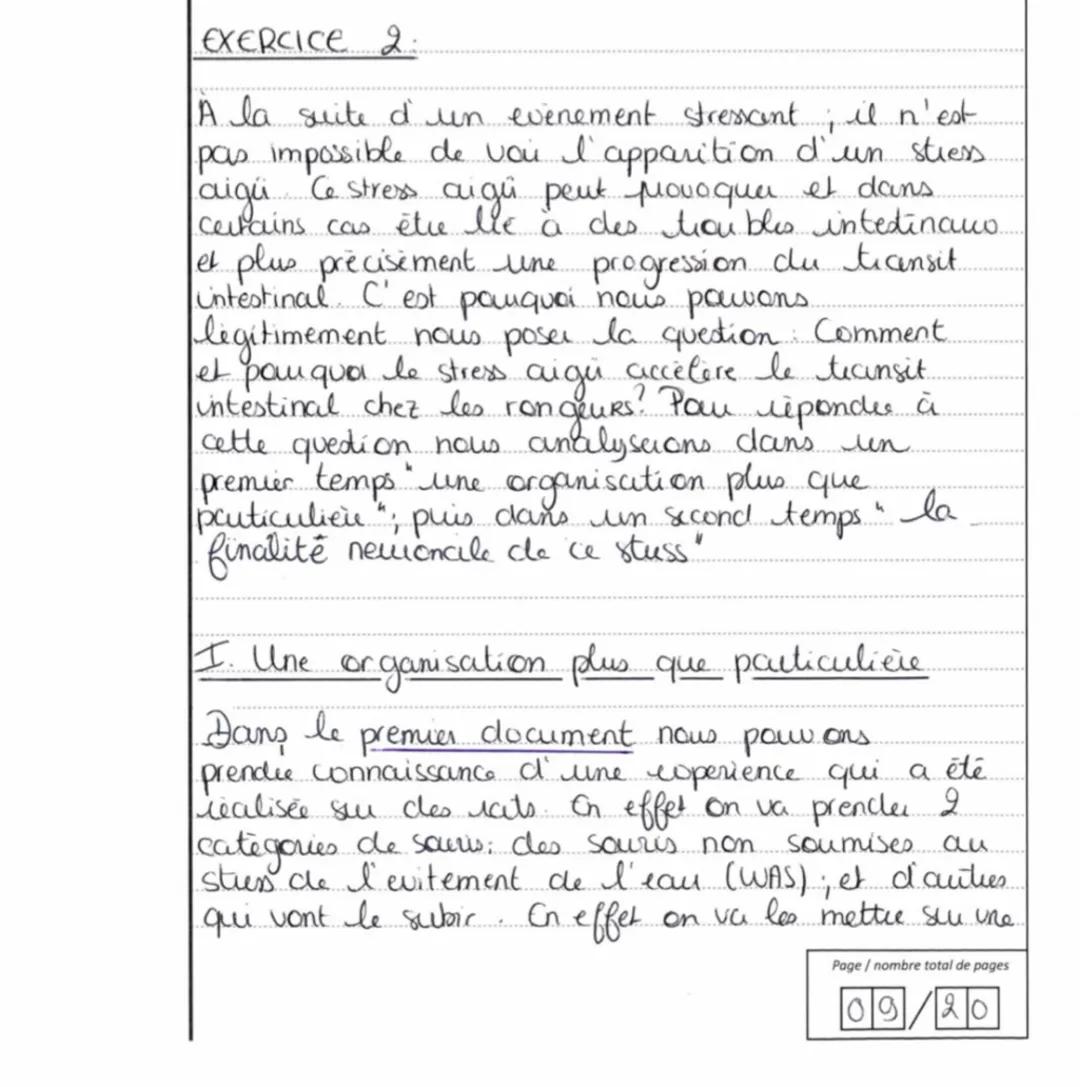 EXERCICE 2:
À la suite d'un evènement stressant ; il n'est
pas impossible de voir l'apparition d'un stress
aigü. Ce stress aigü peut provoquer et dans
certains cas être lié à des troubles intestinaux
et plus précisément une progression du transit
intestinal. C'est pourquoi nous pouvons
légitimement nous poser la question : Comment
et pourquoi le stress aigü accélère le transit
intestinal chez les rongeurs? Pour répondre à
cette question nous analyserons dans un
premier temps "une organisation plus que
particulière"; puis dans un second temps "la
finalité neuronale de ce stress"
I. Une organisation plus que particulière
Dans le premier document nous pouvons
prendre connaissance d'une experience qui a été
réalisée sur des rats. En effet on va prendre 2
catégories de souris: des souris non soumises au
stress de l'evitement de l'eau (WAS) ; et d'autres
qui vont le subir. En effet on va les mettre sur une
Page / nombre total de pages
09/20